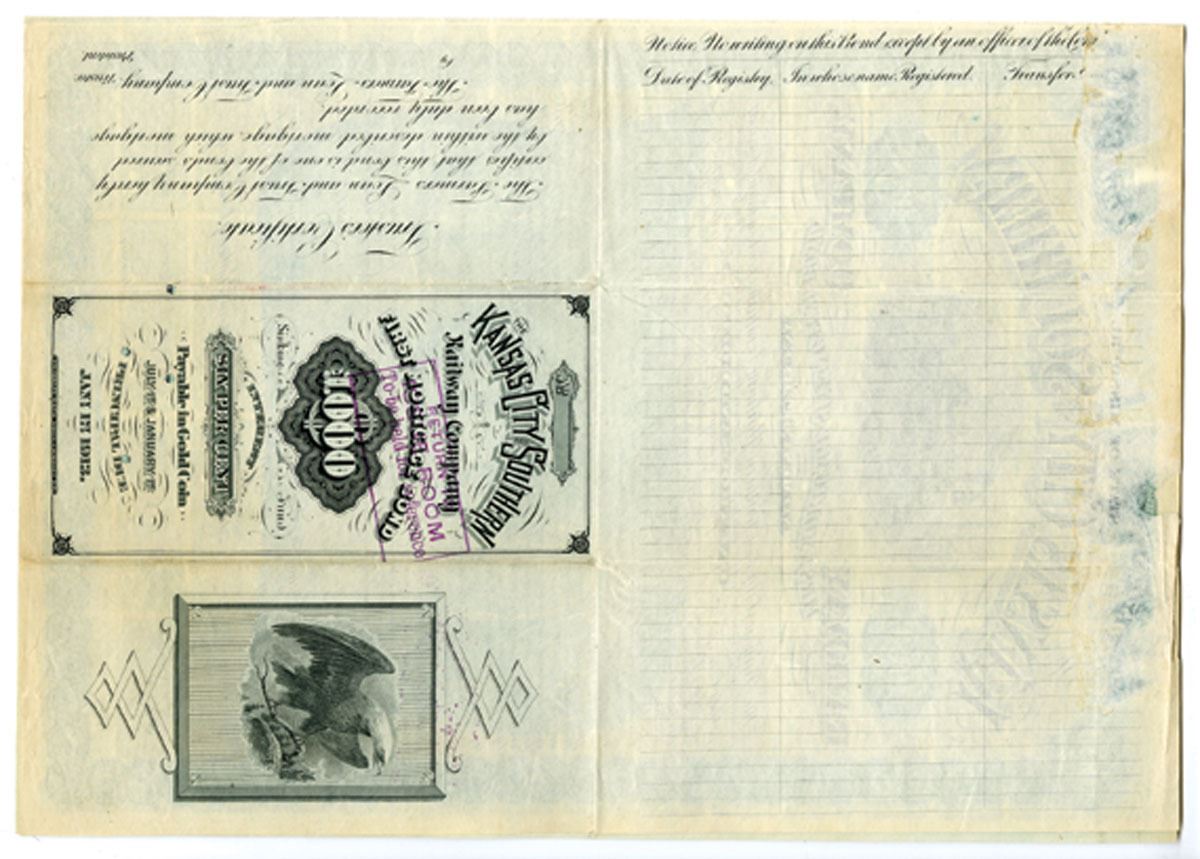 Notice. No writing on this Bond except by an officer of the Comy
Date of Registry. In whose name Registered. Transfer.
Trustee's Certificate.
The Farmers Loan and Trust Company hereby
certifies that this bond is one of the bonds secured
by the within described mortgage which mortgage
has been duly recorded.
The Farmers Loan and Trust Company
Trustee
By
President
No.
THE
KANSAS CITY SOUTHERN
Railway Company
FIRST MORTGAGE BOND
$1000
Sinking Fund
INTEREST
SIX PER CENT
Payable in Gold Coin
JULY 1ST & JANUARY 1ST
PRINCIPAL DUE
JANY 1ST 1912.
RETURN
ROOM
To be held for